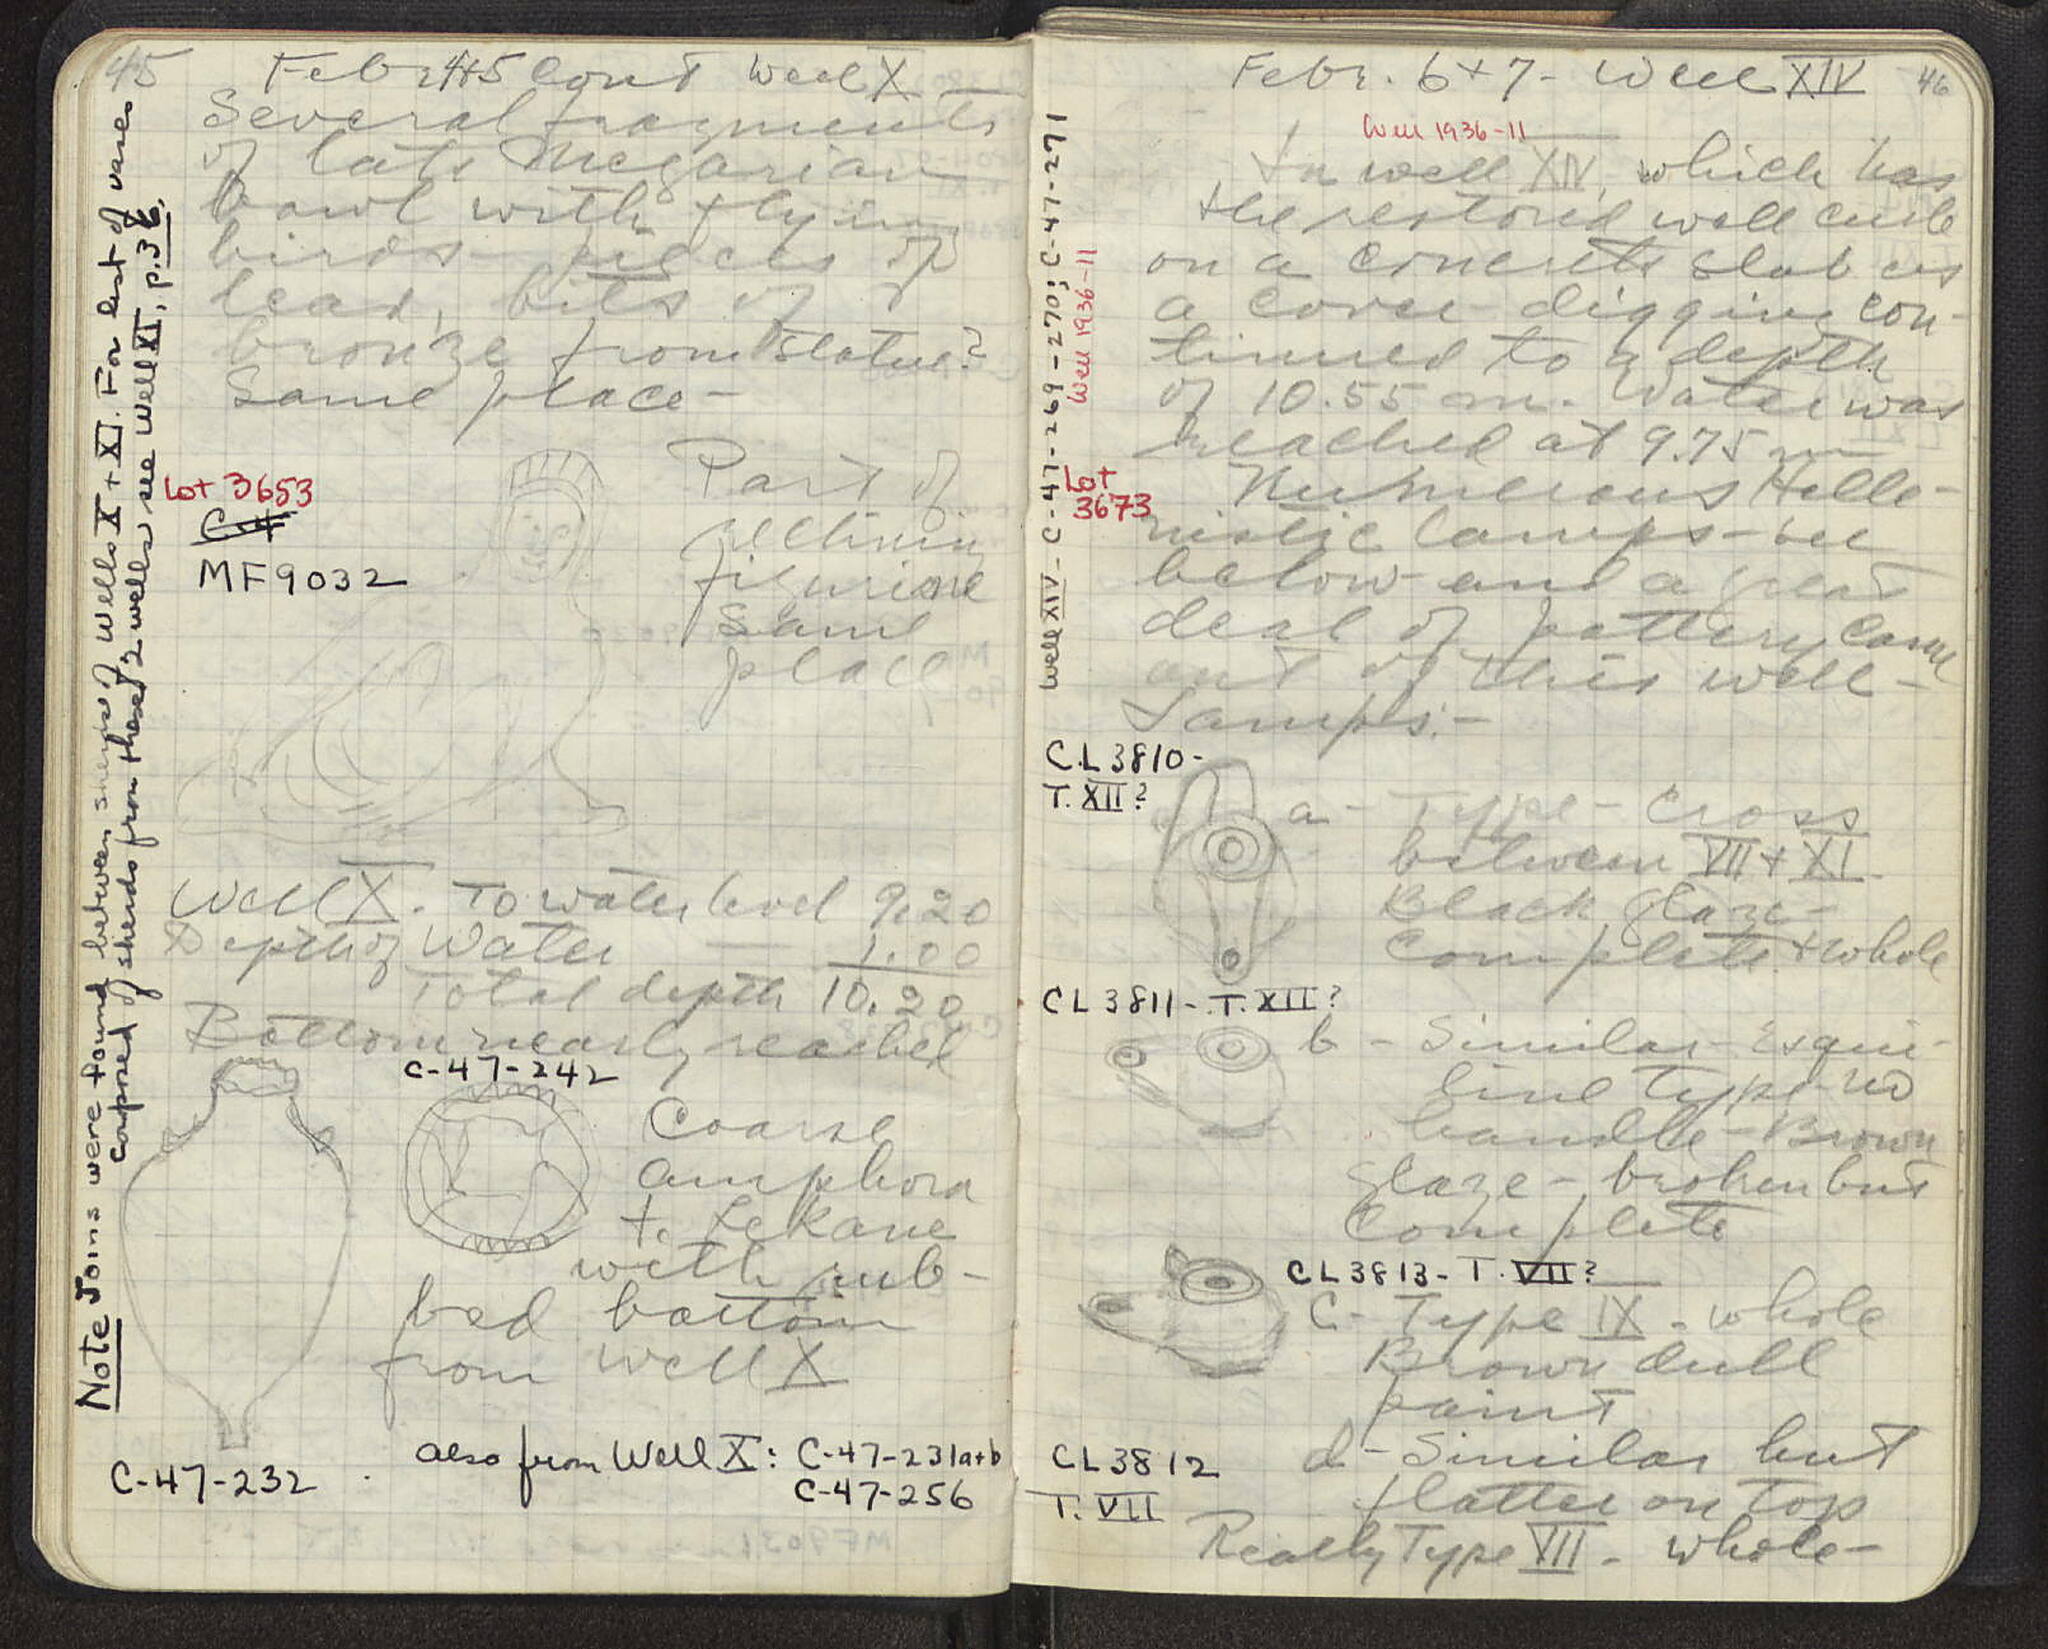 45
Febr 4+5 cont Well X
Several fragments
of late Megarian
bowl with flying
birds - pieces of
lead, bits of
bronze from statue?
Same place -
Lot 3653
MF 9032
Part of
reclining
figurine
Same
place
Well X. To water level 9.20
Depth of Water — 1.00
Total depth 10.20
Bottom nearly reached
C-47-242
Coarse
amphora
+ Lekane
with rib-
bed bottom
from well X
C-47-232
also from Well X: C-47-231a+b
C-47-256
Note Joins were found between sherds of Wells X + XI. For list of vases
composed of sherds from these 2 wells see Well XI, p. 38.
Febr. 6+7 - Well XIV
46
Well 1936-11
In well XIV, which has
the restored well curb
on a concrete slab as
a cover digging con-
tinued to a depth
of 10.55 m. Water was
reached at 9.75 m
Lot
3673
Numerous Helle-
nistic lamps - see
below and a great
deal of pottery came
out of this well -
Lamps: -
Well XIV - C-47-269-270; C-47-271
Well 1936-11
CL 3810 -
T. XII?
a - Type - Cross
between VII + XI.
Black glaze -
Complete + whole
CL 3811 - T. XII?
b - Similar Esqui-
line type - no
handle - Brown
glaze - broken but
complete
CL 3813 - T. VII?
C - Type IX - whole
Brown dull
paint
CL 3812
T. VII
d - Similar but
flatter on top
Really Type VII - whole -